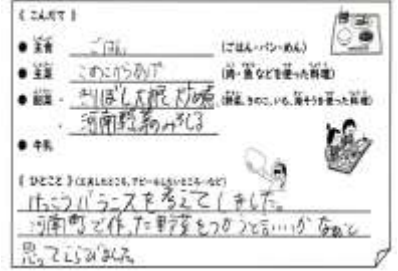 《 こんだて 》
● 主食 ごはん (ごはん・パン・めん)
● 主菜 (肉・魚などを使った料理)
● 副菜・きりぼし大根 (野菜、きのこ、いも、海そうを使った料理)
・河南野菜のみそしる
● 牛乳
《 ひとこと 》(工夫したところ、アピールしたいところ…など)
けっこうバランスを考えてしました。
河南町で作った野菜をつかうと言いかなぁと
思ってえらびました。